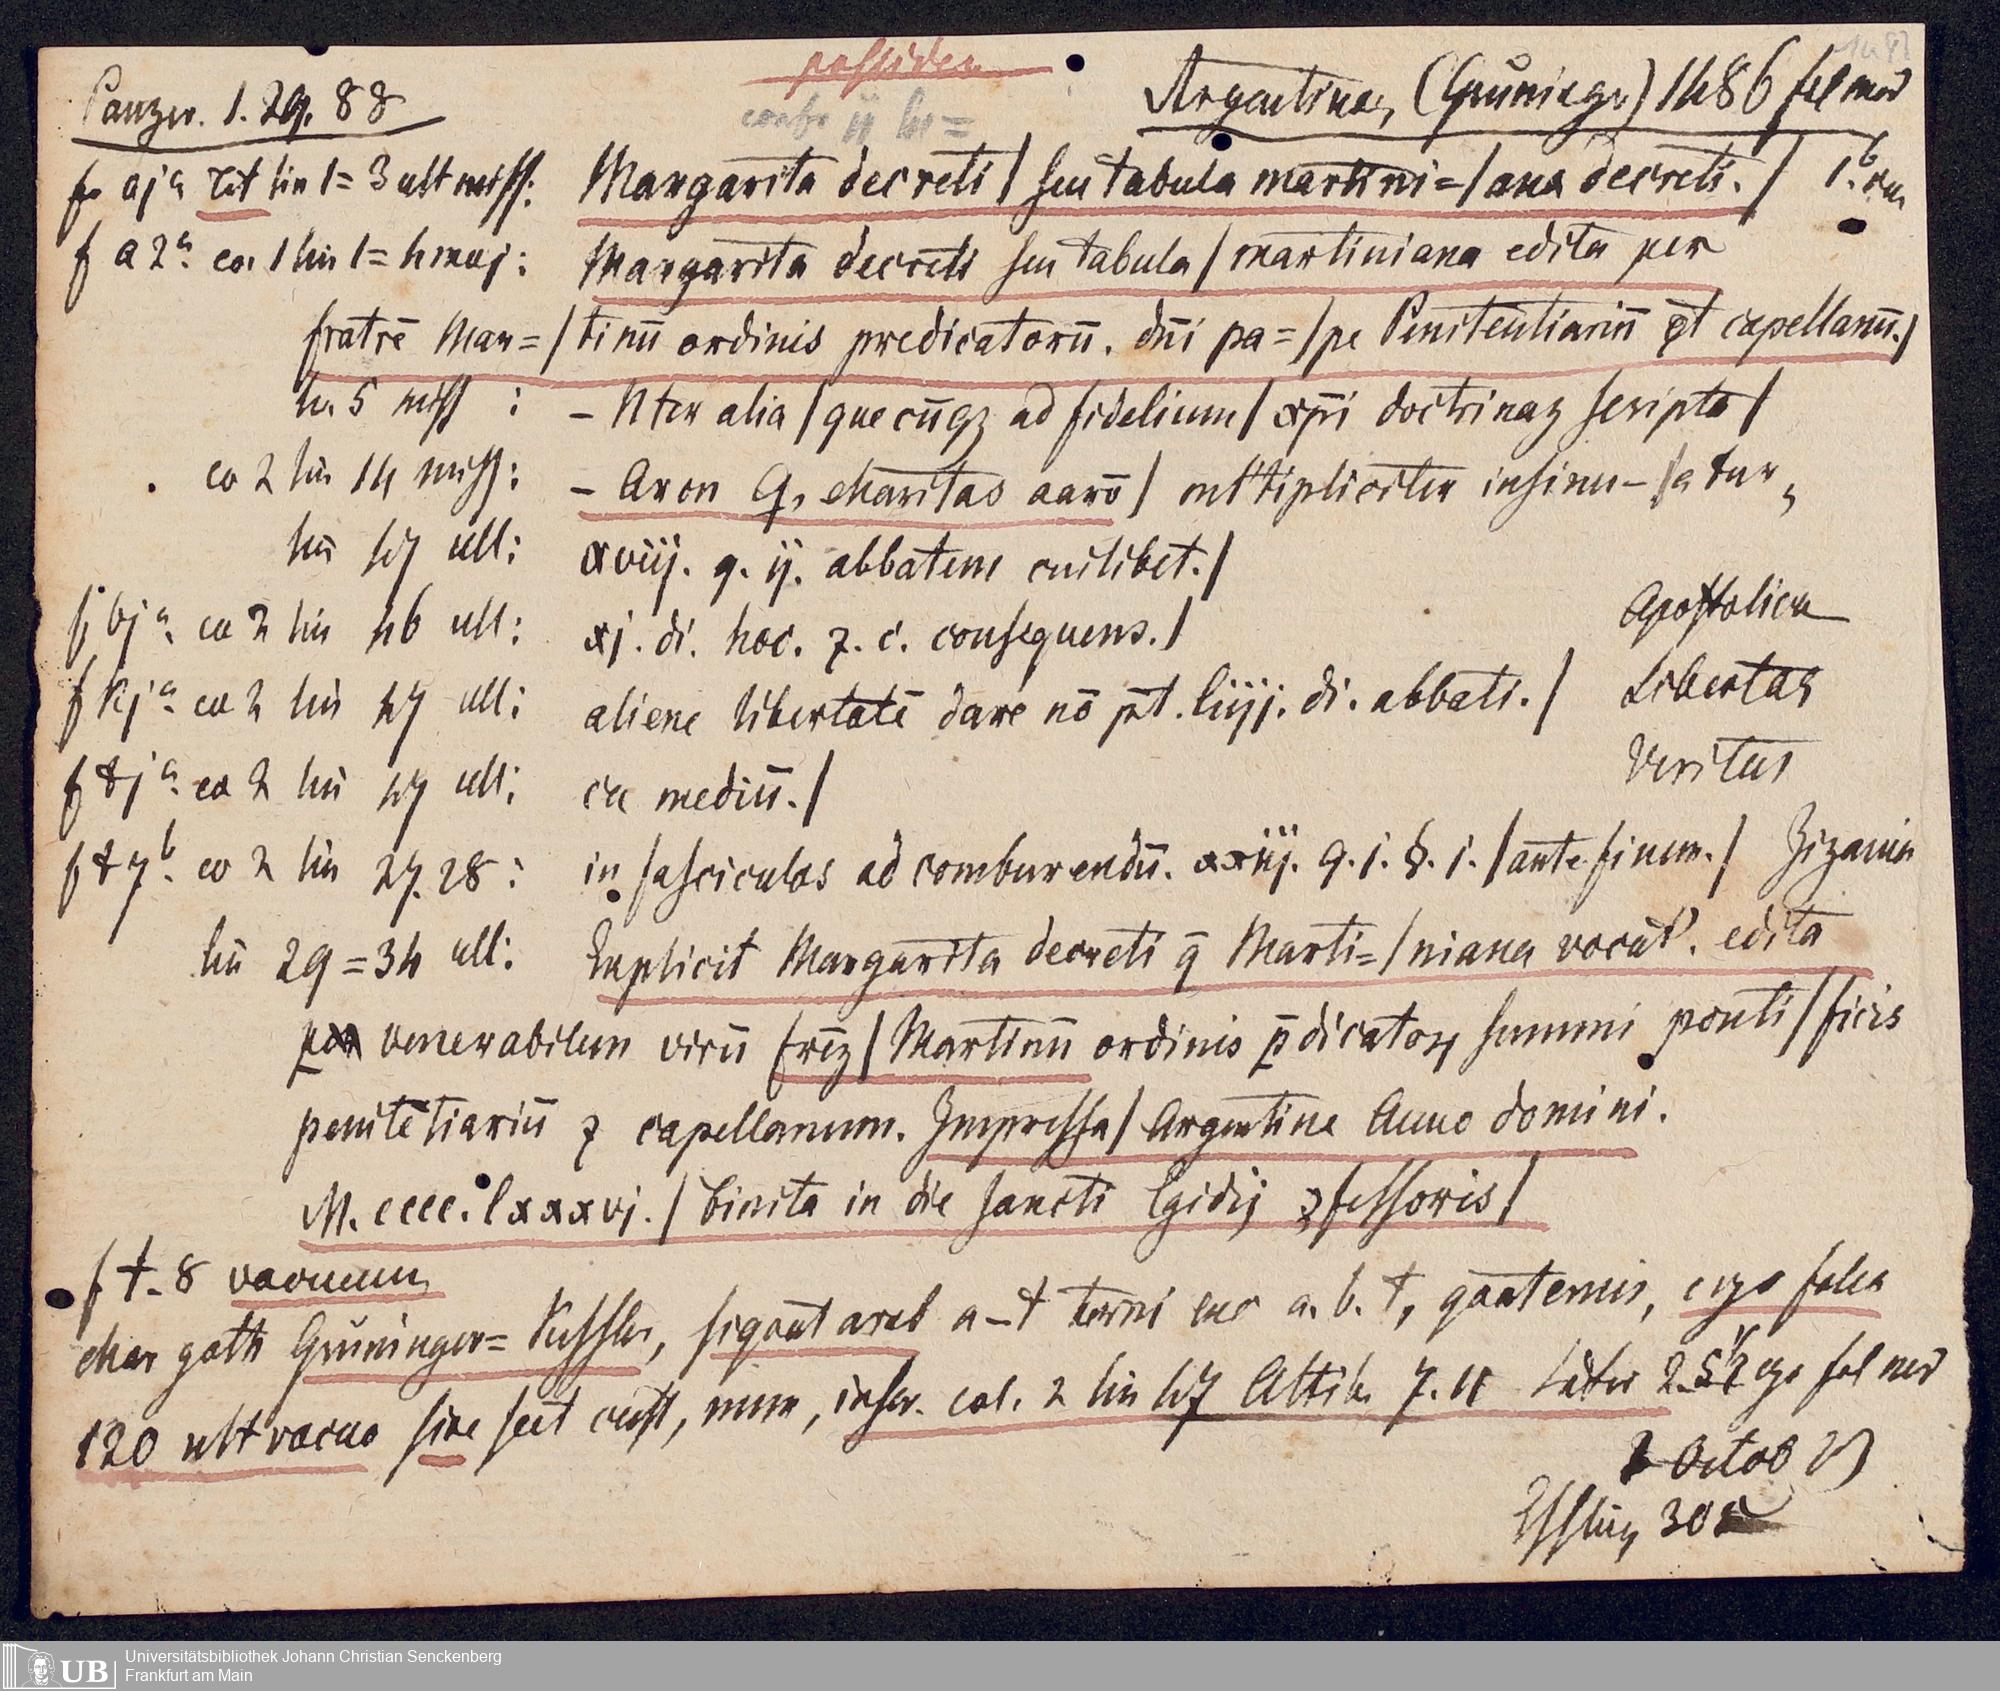 possidem
Panzer. 1. 29. 88
Argentinae, (Grüninger) 1486 fol med
f. aj a Tit lin 1=3 ult miss: Margarita decreti / seu tabula martini=/ana decreti. / 1. b
f a 2 a. co 1 lin 1=4 maj: Margarita decreti seu tabula / martiniana edita per
fratrē Mar=/tinū ordinis predicatorū. dñi pa=/pe Penitentiariū et capellanū./
lin. 5 miss : – Nter alia / que cūqz ad fidelium / xpi doctrinaz scripta /
co 2 lin 14 miss: – Aron q, charitas aarō / mltipliciter insinu–/atur,
lin 47 ult: xviij. q. ij. abbatem cuilibet./
f bj a. co 2 lin 46 ult: xj. di. hoc. z. c. consequens./ Apostolica
f kj a co 2 lin 47 ult: aliene libertatē dare nō pt. liiij. di. abbati. / Libertas
f tj a. co 2 lin 47 ult: ca mediū./ Veritas
f t 7 b. co 2 lin 27. 28: in fasciculos ad comburendū. xxiij. q. j. §. j. / ante finem. / Zizania
lin 29=34 ult: Explicit Margarita decreti q̄ Marti=/niana vocat. edita
per venerabilem virū frēz / Martinū ordinis p̄dicatoꝝ summi ponti/ficis
penitētiariū z capellanum. Impressa / Argentine Anno domini.
M. cccc. lxxxvj. / finita in die sancti Egidij ꝯfessoris /
f t–8 vacuum
char goth Grüninger=Kessler, signat arab a–t terni exc a. b. t, quaternis, ergo folia
120 ult vacuo sine cust, num, inscr. col. 2 lin 47 7. 11 2. ergo fol med
Octob
308
Universitätsbibliothek Johann Christian Senckenberg
UB Frankfurt am Main